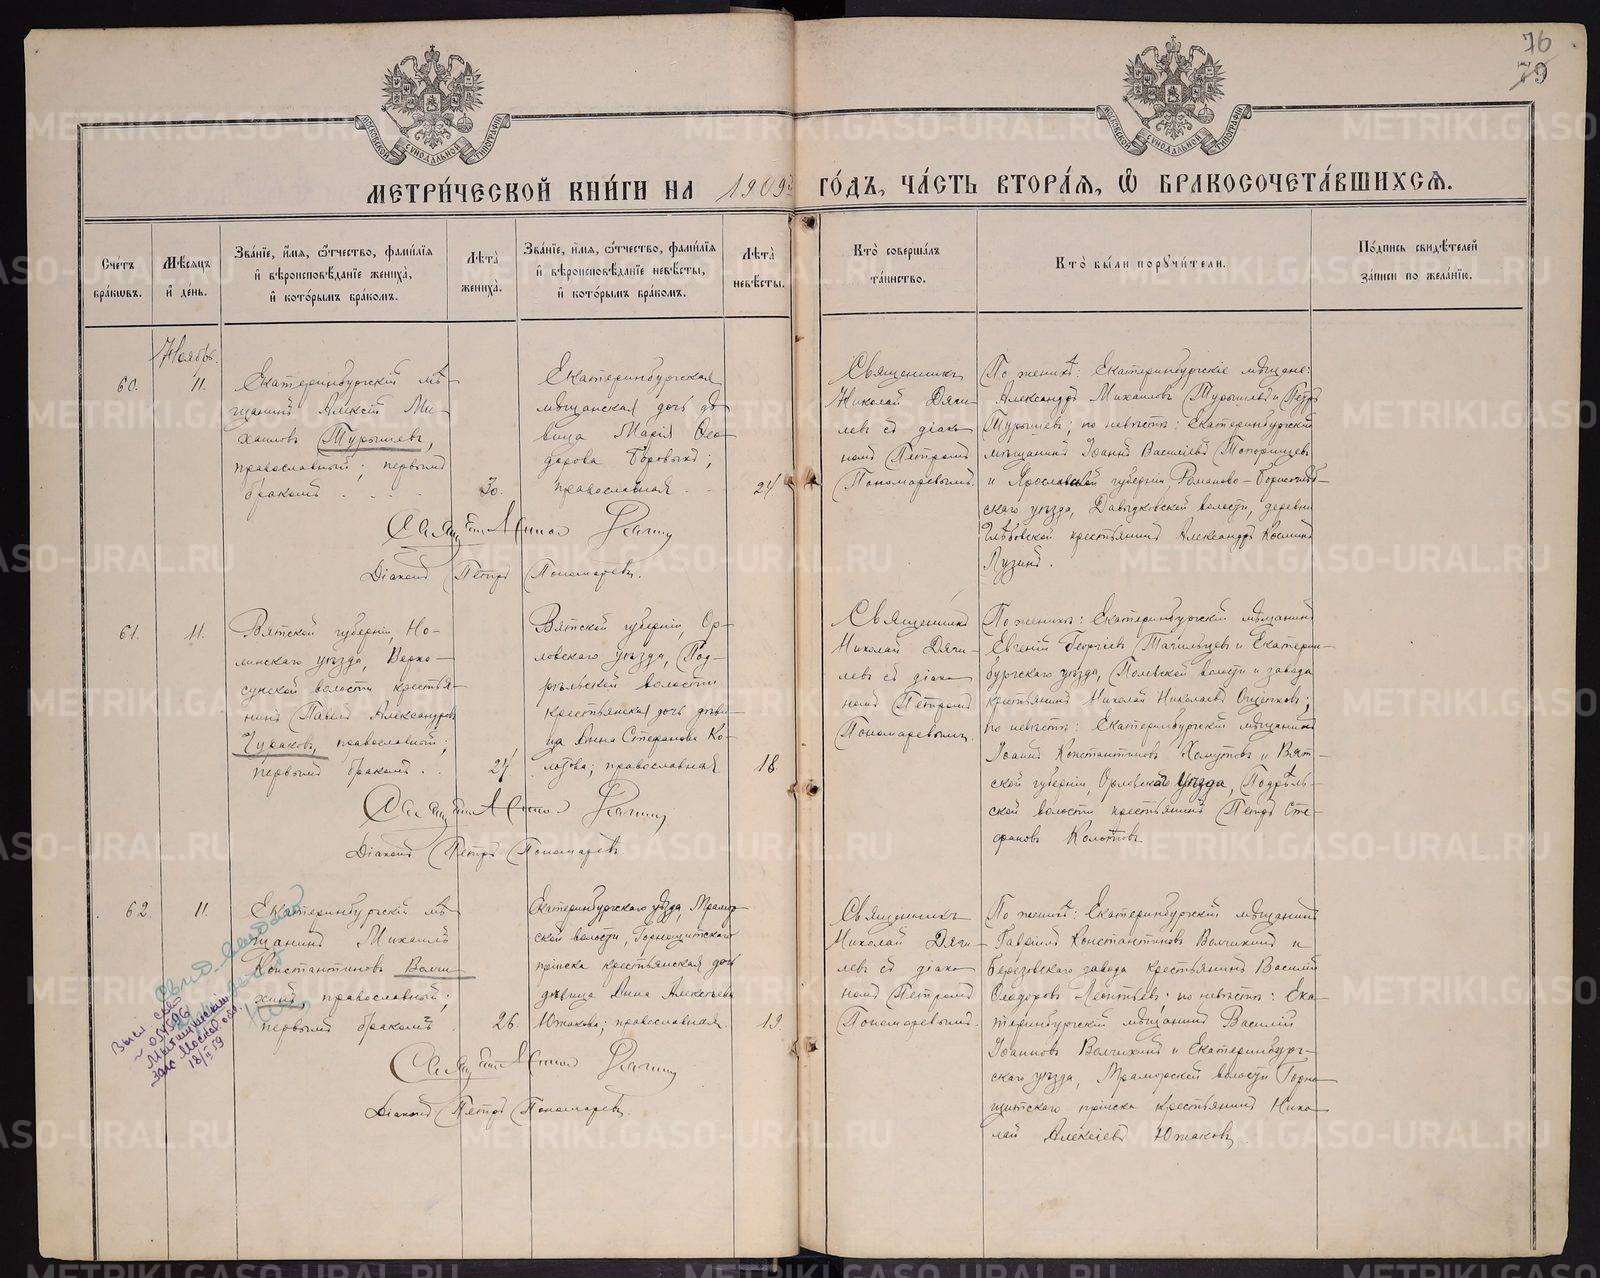 76
79
МОСКОВСКОЙ СѴНОДАЛЬНОЙ ТИПОГРАФІИ
МОСКОВСКОЙ СѴНОДАЛЬНОЙ ТИПОГРАФІИ
МЕТРИ́ЧЕСКОЙ КНИ́ГИ НА 1909й ГО́ДЪ, ЧА́СТЬ ВТОРА́Я, Ѽ БРАКОСОЧЕТА́ВШИХСЯ.
Сче́тъ бра́кѡвъ.
Мѣ́сяцъ и́ де́нь.
Зва́нїе, и́мя, ѻ҆́тчество, фами́лїя и́ вѣроисповѣ́данїе жениха́, и́ кото́рымъ бра́комъ.
Лѣта̀ жениха̀.
Зва́нїе, и́мя, ѻ҆́тчество, фами́лїя и́ вѣроисповѣ́данїе невѣ́сты, и́ кото́рымъ бра́комъ.
Лѣта̀ невѣ́сты.
Кто̀ соверша́лъ та́инство.
Кто̀ бы́ли поручи́тели.
По́дпись свидѣ́телей за́писи по жела́нїю.
Ноябрь.
60.
11.
Екатеринбургскій мѣ-
щанинъ Алексій Ми-
хаиловъ Турышевъ,
православный; первымъ
бракомъ
30.
Екатеринбургская
мѣщанская дочь дѣ-
вица Марія Ѳео-
дорова Боровыхъ;
православная
24
Священникъ
Николай Дяги-
левъ съ діако-
номъ Петромъ
Пономаревымъ.
По женихѣ: Екатеринбургскіе мѣщане:
Александръ Михаиловъ Турышевъ и Петръ
Турышевъ; по невѣстѣ: Екатеринбургскій
мѣщанинъ Іоаннъ Василіевъ Топорищевъ
и Ярославской губерніи Романово-Борисоглѣб-
скаго уѣзда, Давыдковской волости, деревни
Глѣбовской крестьянинъ Александръ Косминъ
Лузинъ.
Священникъ
Діаконъ Петръ Пономаревъ.
61.
11.
Вятской губерніи, Но-
линскаго уѣзда, Верхо-
сунской волости крестья-
нинъ Павелъ Александровъ
Чураковъ, православный;
первымъ бракомъ
24
Вятской губерніи, Ор-
ловскаго уѣзда, Под-
рѣльской волости
крестьянская дочь дѣви-
ца Анна Стефанова Ко-
лотова; православная
18.
Священникъ
Николай Дяги-
левъ съ діако-
номъ Петромъ
Пономаревымъ.
По женихѣ: Екатеринбургскій мѣщанинъ
Евгеній Георгіевъ Тагильцевъ и Екатерин-
бургскаго уѣзда, Полевской волости и завода
крестьянинъ Николай Николаевъ;
по невѣстѣ: Екатеринбургскій мѣщанинъ
Іоаннъ Константиновъ Хомутовъ и Вят-
ской губерніи, Орловскаго уѣзда, Подрѣль-
ской волости крестьянинъ Петръ Сте-
фановъ Колотовъ.
Священникъ
Діаконъ Петръ Пономаревъ
62.
11.
Екатеринбургскій мѣ-
щанинъ Михаилъ
Константиновъ Волчи-
хинъ, православный;
первымъ бракомъ
26.
Екатеринбургскаго уѣзда, Мрамор-
ской волости, Горнощитскаго
пріиска крестьянская дочь
дѣвица Анна Алексѣева
Ютакова; православная
19.
Священникъ
Николай Дяги-
левъ съ діако-
номъ Петромъ
Пономаревымъ.
По женихѣ: Екатеринбургскій мѣщанинъ
Гавріилъ Константиновъ Волчихинъ и
Березовскаго завода крестьянинъ Василій
Ѳеодоровъ Леонтьевъ; по невѣстѣ: Ека-
теринбургскій мѣщанинъ Василій
Іоанновъ Волчихинъ и Екатеринбург-
скаго уѣзда, Мраморской волости Горно-
щитскаго пріиска крестьянинъ Нико-
лай Алексіевъ Ютаковъ.
Священникъ
Діаконъ Петръ Пономаревъ.
18/II 59
METRIKI.GASO-URAL.RU